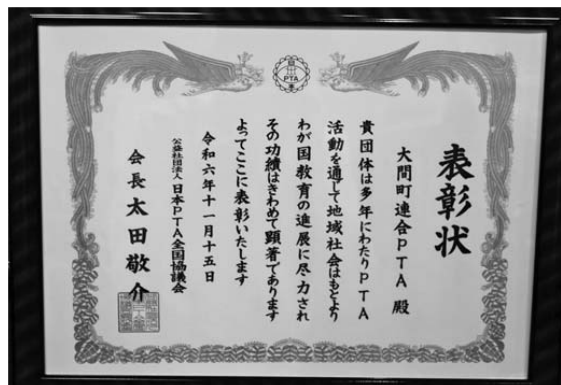 表彰状
大間町連合PTA 殿
貴団体は多年にわたりPTA
活動を通して地域社会はもとより
わが国教育の進展に尽力され
その功績はきわめて顕著であります
よってここに表彰いたします
令和六年十一月十五日
公益社団法人 日本PTA全国協議会
会長 太田敬介
PTA